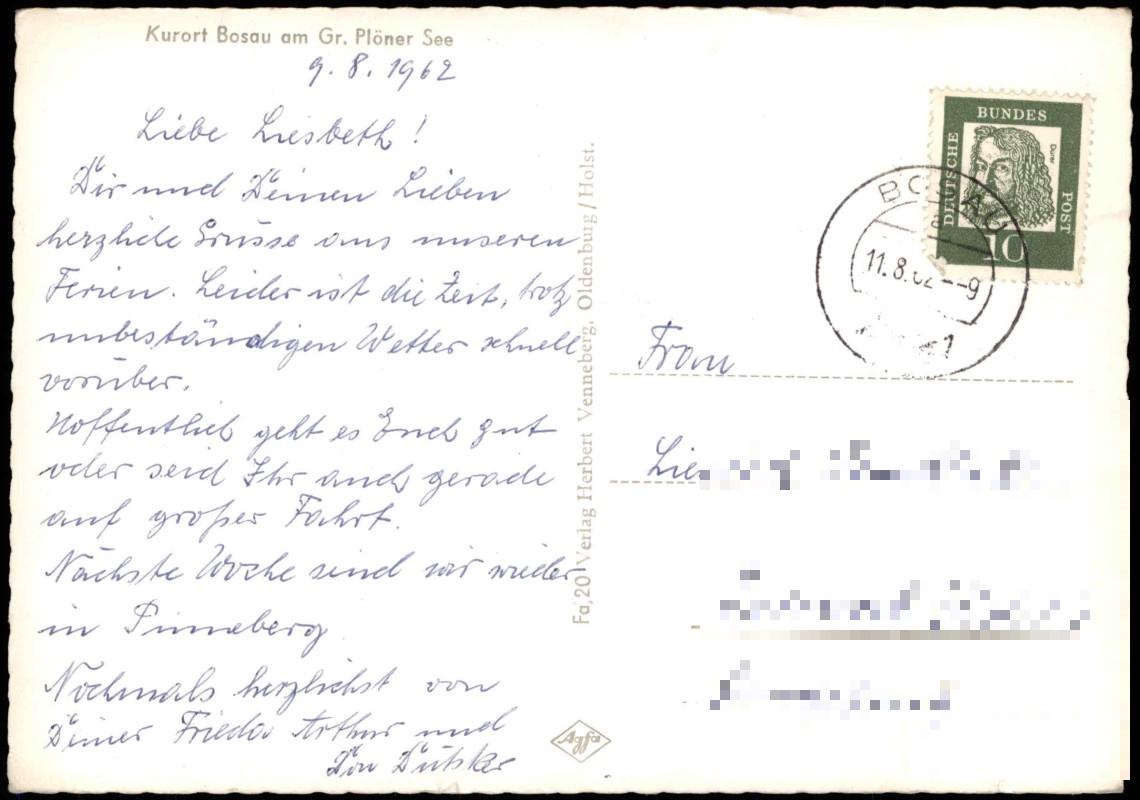 Kurort Bosau am Gr. Plöner See
9. 8. 1962
Liebe Liesbeth!
Dir und Deinen Lieben
herzliche Grüsse aus unseren
Ferien. Leider ist die Zeit, trotz
unbeständigen Wetter schnell
vorüber.
Hoffentlich geht es Euch gut
oder seid Ihr auch gerade
auf großer Fahrt.
Nächste Woche sind wir wieder
in Pinneberg
Nochmals herzlichst von
Deiner Frieda Arthur und
Fa,20 Verlag Herbert Venneberg, Oldenburg/Holst.
Agfa
DEUTSCHE
BUNDES
POST
Dürer
10
BOSAU
a
11.8.62--9
Frau